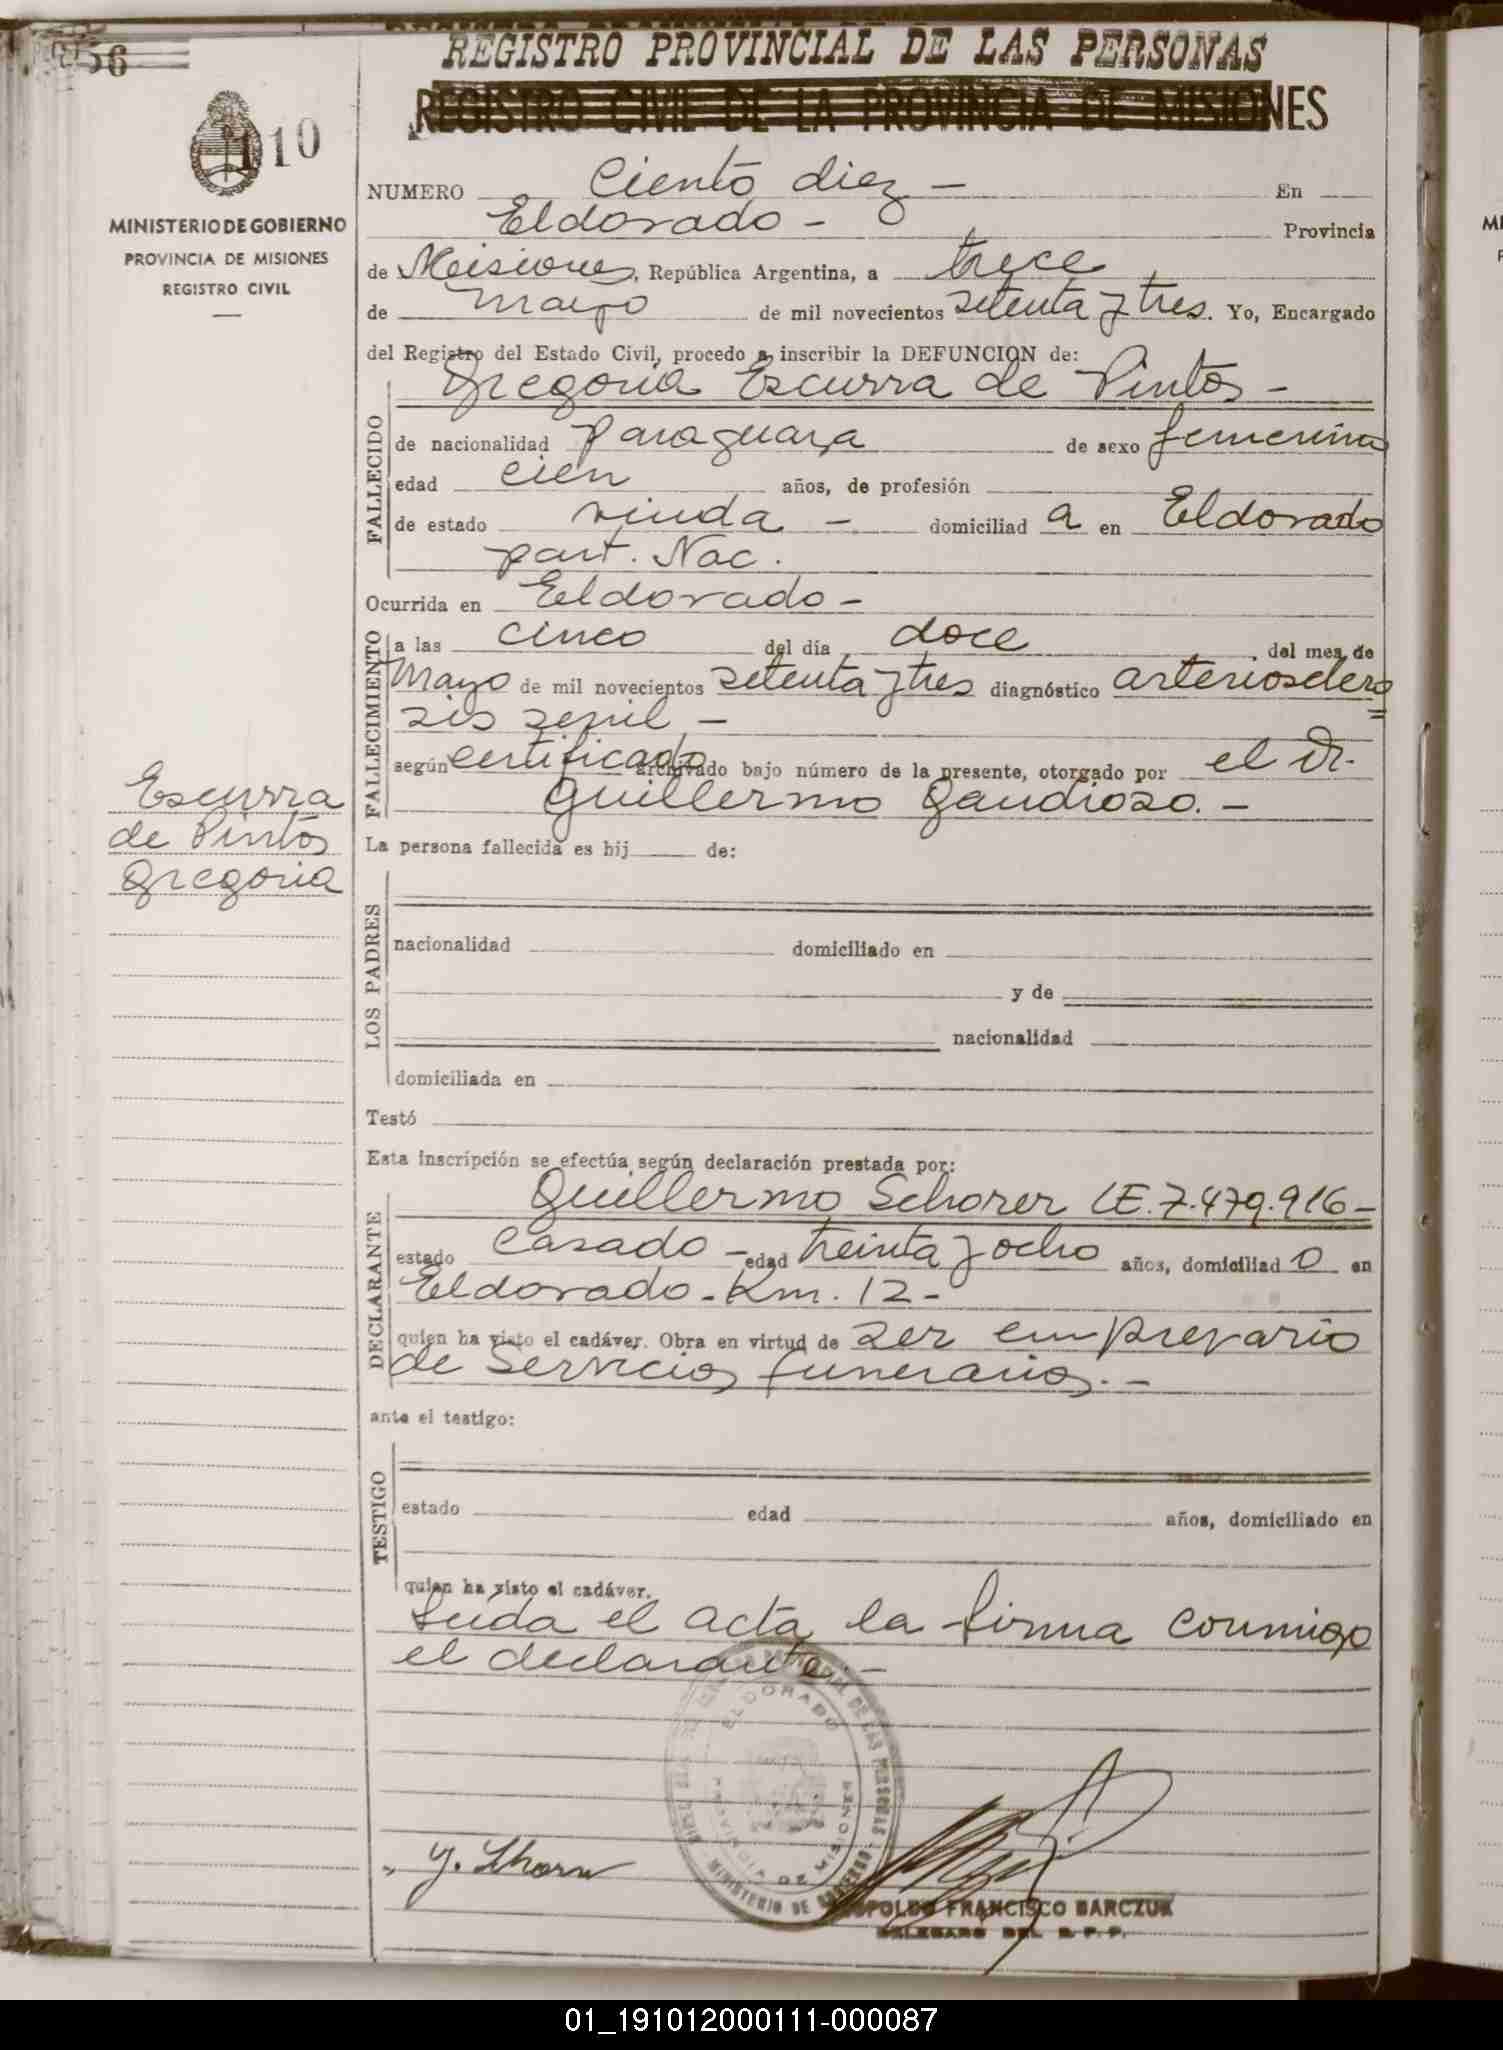 56
REGISTRO PROVINCIAL DE LAS PERSONAS
REGISTRO CIVIL DE LA PROVINCIA DE MISIONES
110
MINISTERIO DE GOBIERNO
PROVINCIA DE MISIONES
REGISTRO CIVIL
NUMERO Ciento diez - En
Eldorado - Provincia
de Misiones, República Argentina, a trece
de mayo de mil novecientos setenta y tres. Yo, Encargado
del Registro del Estado Civil, procedo a inscribir la DEFUNCION de:
Gregoria Escurra de Pintos -
FALLECIDO
de nacionalidad paraguaya de sexo femenino
edad cien años, de profesión
de estado viuda - domiciliad a en Eldorado
part. Nac.
Ocurrida en Eldorado -
FALLECIMIENTO
a las cinco del día doce del mes de
Mayo de mil novecientos setenta y tres diagnóstico arterioesclero
sis senil -
según certificado archivado bajo número de la presente, otorgado por el Dr.
Guillermo Gaudioso. -
Escurra
de Pintos
Gregoria
La persona fallecida es hij de:
LOS PADRES
nacionalidad domiciliado en
y de
nacionalidad
domiciliada en
Testó
Esta inscripción se efectúa según declaración prestada por:
DECLARANTE
Guillermo Schorer LE. 7.479.916 -
estado Casado - edad treinta y ocho años, domiciliad o en
Eldorado - Km. 12 -
quien ha visto el cadáver. Obra en virtud de ser empresario
de Servicios funerarios. -
ante el testigo:
TESTIGO
estado edad años, domiciliado en
quien ha visto el cadáver.
Leida el acta la firma conmigo
el declarante. -
ELDORADO
PROVINCIA DE MISIONES
MINISTERIO DE GOBIERNO
LEOPOLDO FRANCISCO BARCZUK
DELEGADO DEL R. P. P.
01_191012000111-000087